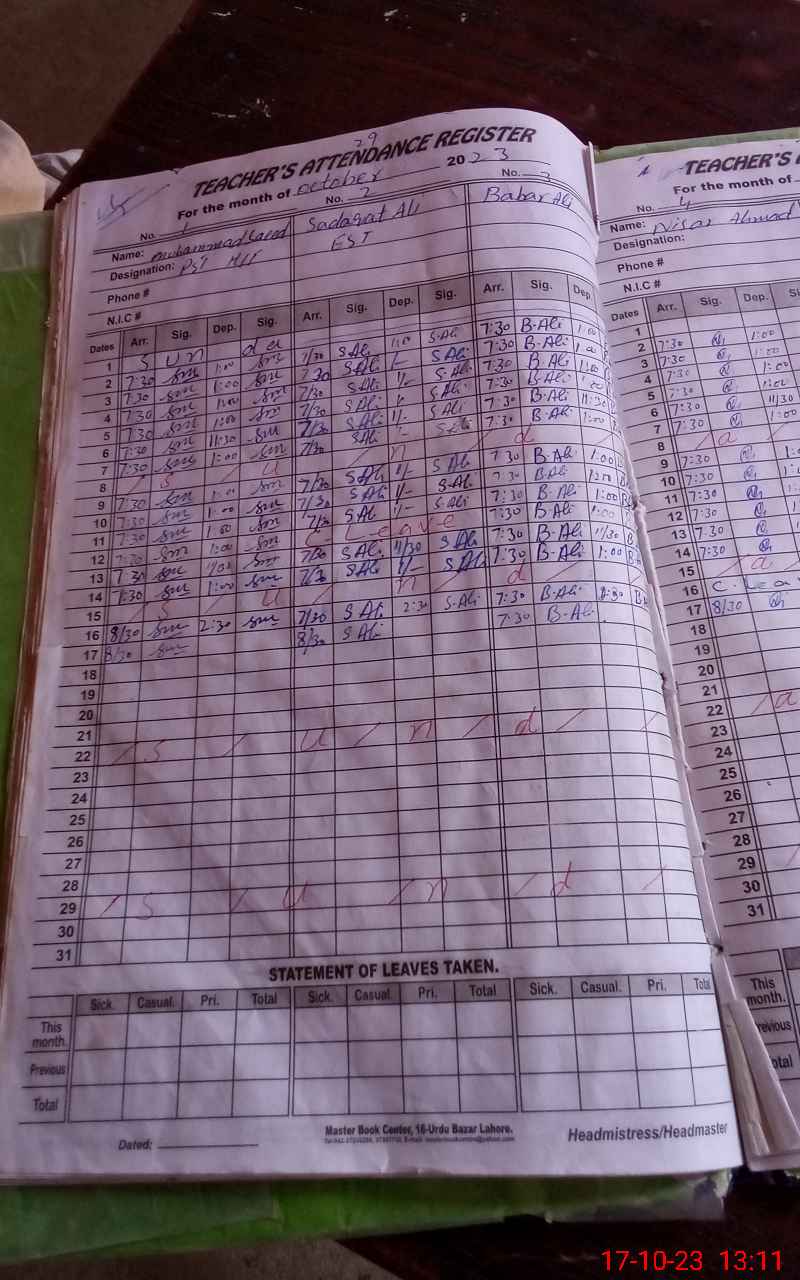 29
TEACHER'S ATTENDANCE REGISTER
For the month of october 2023
No. 1 No. 2 No. 3
Name: Muhammad Saeed Sadaqat Ali Babar Ali
Designation: PST HIT EST
Phone #
N.I.C #
Dates Arr. Sig. Dep. Sig. Arr. Sig. Dep. Sig. Arr. Sig. Dep
1 S u n d a
2 7:30 sm 1:00 sm 7/30 S Ali 1:00 S.Ali 7:30 B.Ali 1:00
3 7:30 sm 1:00 sm 7/30 S Ali 1/- S Ali 7:30 B.Ali 1:00
4 7:30 sm 1:00 sm 7/30 S Ali 1/- S.Ali 7:30 B.Ali 1:00
5 7:30 sm 1:00 sm 7/30 S Ali 1/- S.Ali 7:30 B.Ali 1:00
6 7:30 sm 11:30 sm 7/30 S Ali S Ali 7:30 B.Ali 11:30
7 7:30 sm 1:00 sm 7/30 S Ali 1/- S.Ali 7:30 B.Ali 1:00
8 / S / u / n / d /
9 7:30 sm 1:00 sm 7/30 S Ali 1/- S Ali 7:30 B.Ali 1:00
10 7:30 sm 1:00 sm 7/30 S Ali 1/- S.Ali 7:30 B.Ali 1:00
11 7:30 sm 1:00 sm 7/30 S Ali 1/- S.Ali 7:30 B.Ali 1:00
12 7:30 sm 1:00 sm C Leave 7:30 B.Ali 1:00
13 7:30 sm sm 7/30 S Ali 11/30 S Ali 7:30 B.Ali 11/30
14 7:30 sm 1:00 sm 7/30 S Ali 1/- S Ali 7:30 B.Ali 1:00
15 / S / u / n / d /
16 8/30 sm 2:30 sm 7/30 S Ali 2:30 S.Ali 7:30 B.Ali 2:30
17 8/30 sm 8/30 S Ali 7:30 B.Ali
18
19
20
21
22 / S / u / n / d / /
23
24
25
26
27
28
29 / S / u / n / d /
30
31
STATEMENT OF LEAVES TAKEN.
Sick. Casual. Pri. Total Sick. Casual. Pri. Total Sick. Casual. Pri. Total
This month.
Previous
Total
Dated:
Master Book Center, 16-Urdu Bazar Lahore.
Headmistress/Headmaster
TEACHER'S
For the month of
No. 4
Name: Nisar Ahmad
Designation:
Phone #
N.I.C #
Dates Arr. Sig. Dep.
1
2 7:30 1:00
3 7:30 1:00
4 7:30 1:00
5 7:30 1:00
6 7:30 11/30
7 7:30 1:00
8 / a /
9 7:30
10 7:30
11 7:30
12 7:30
13 7:30
14 7:30
15 / a /
16 C. Lea
17 8/30
18
19
20
21
22 / a
23
24
25
26
27
28
29
30
31
This month.
revious
otal
17-10-23 13:11